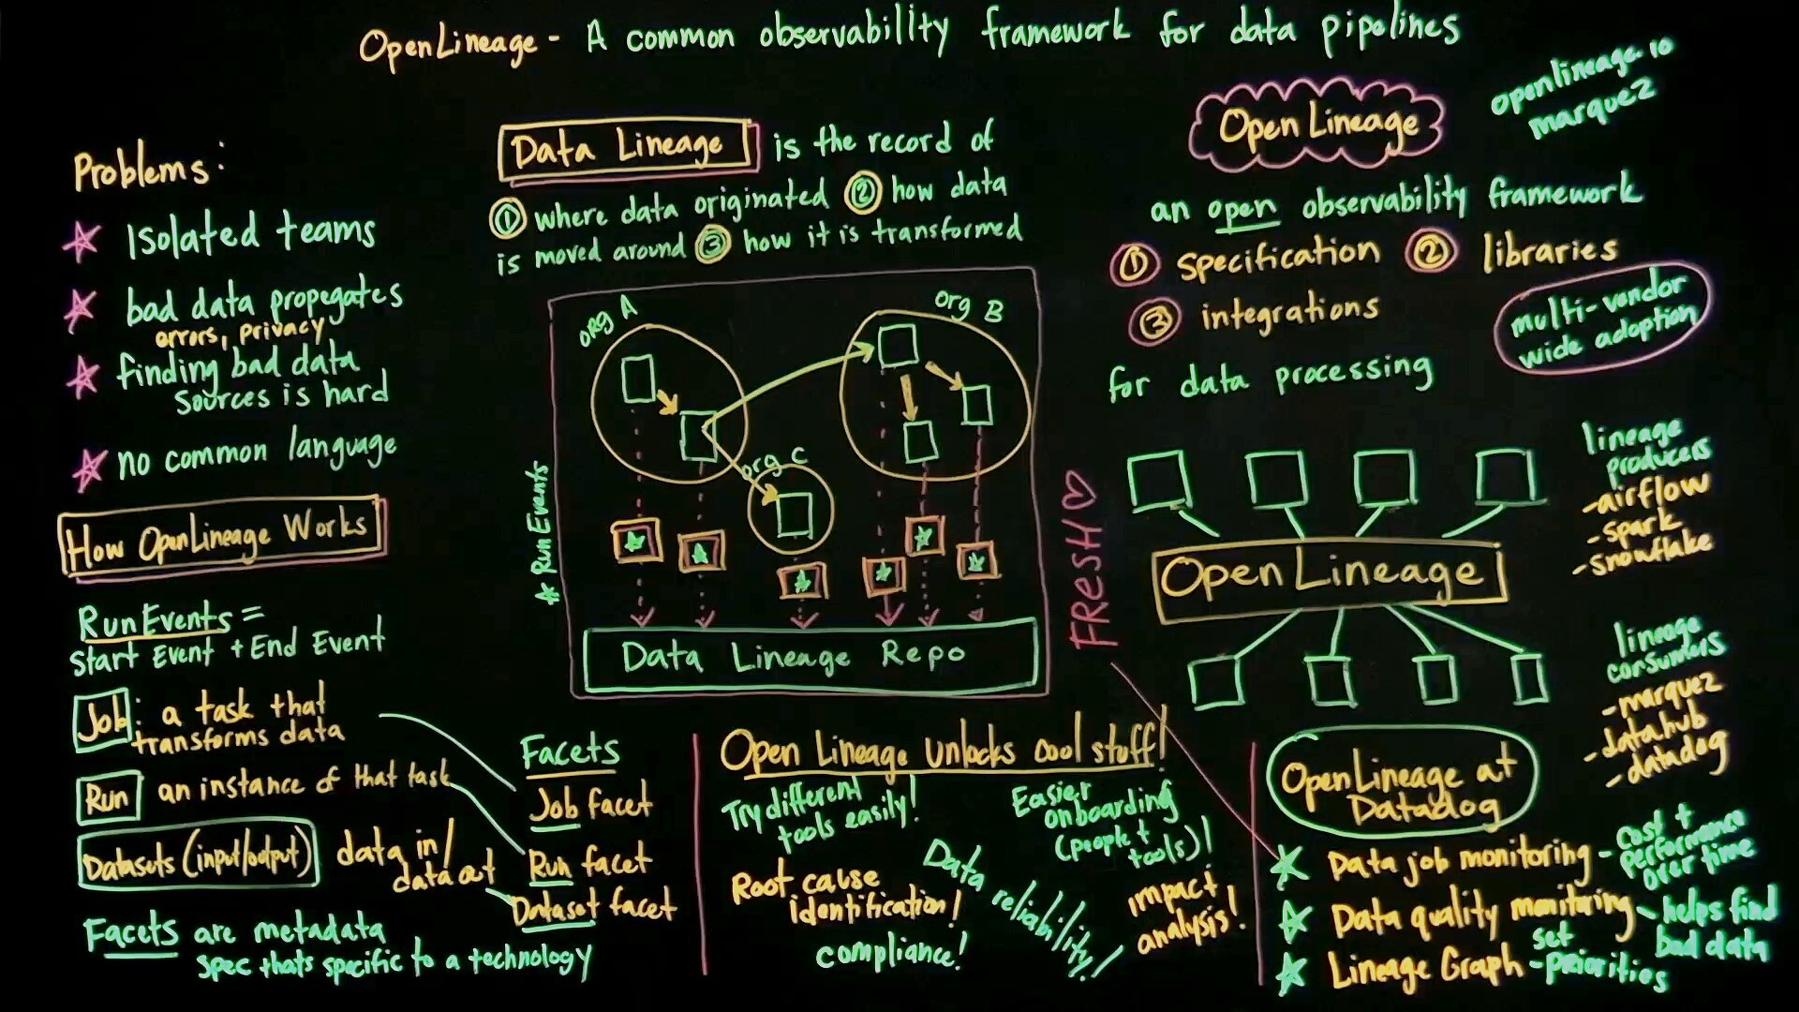 OpenLineage - A common observability framework for data pipelines
openlineage.io
marquez
Problems:
Isolated teams
bad data propegates
errors, privacy
finding bad data
sources is hard
no common language
How OpenLineage Works
RunEvents =
Start Event + End Event
Job: a task that
transforms data
Run an instance of that task
Datasets (input/output) data in/
data out
Facets are metadata
spec thats specific to a technology
Facets
Job facet
Run facet
Dataset facet
Data Lineage is the record of
① where data originated ② how data
is moved around ③ how it is transformed
org A
org B
org C
* RunEvents
Data Lineage Repo
Open Lineage unlocks cool stuff!
Try different
tools easily!
Easier
onboarding
(people +
tools)!
Root cause
identification!
Data reliability!
impact
analysis!
compliance!
Open Lineage
an open observability framework
① specification ② libraries
③ integrations
multi-vendor
wide adoption
for data processing
lineage
producers
- airflow
- spark
- snowflake
Open Lineage
FRESH
lineage
consumers
- marquez
- datahub
- datadog
OpenLineage at
Datadog
Data job monitoring - cost +
performance
over time
Data quality monitoring - helps find
bad data
Lineage Graph - set
priorities